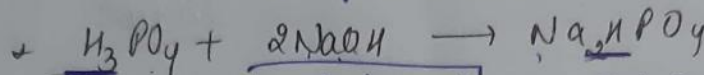 H₃PO₄ + 2NaOH → Na₂HPO₄